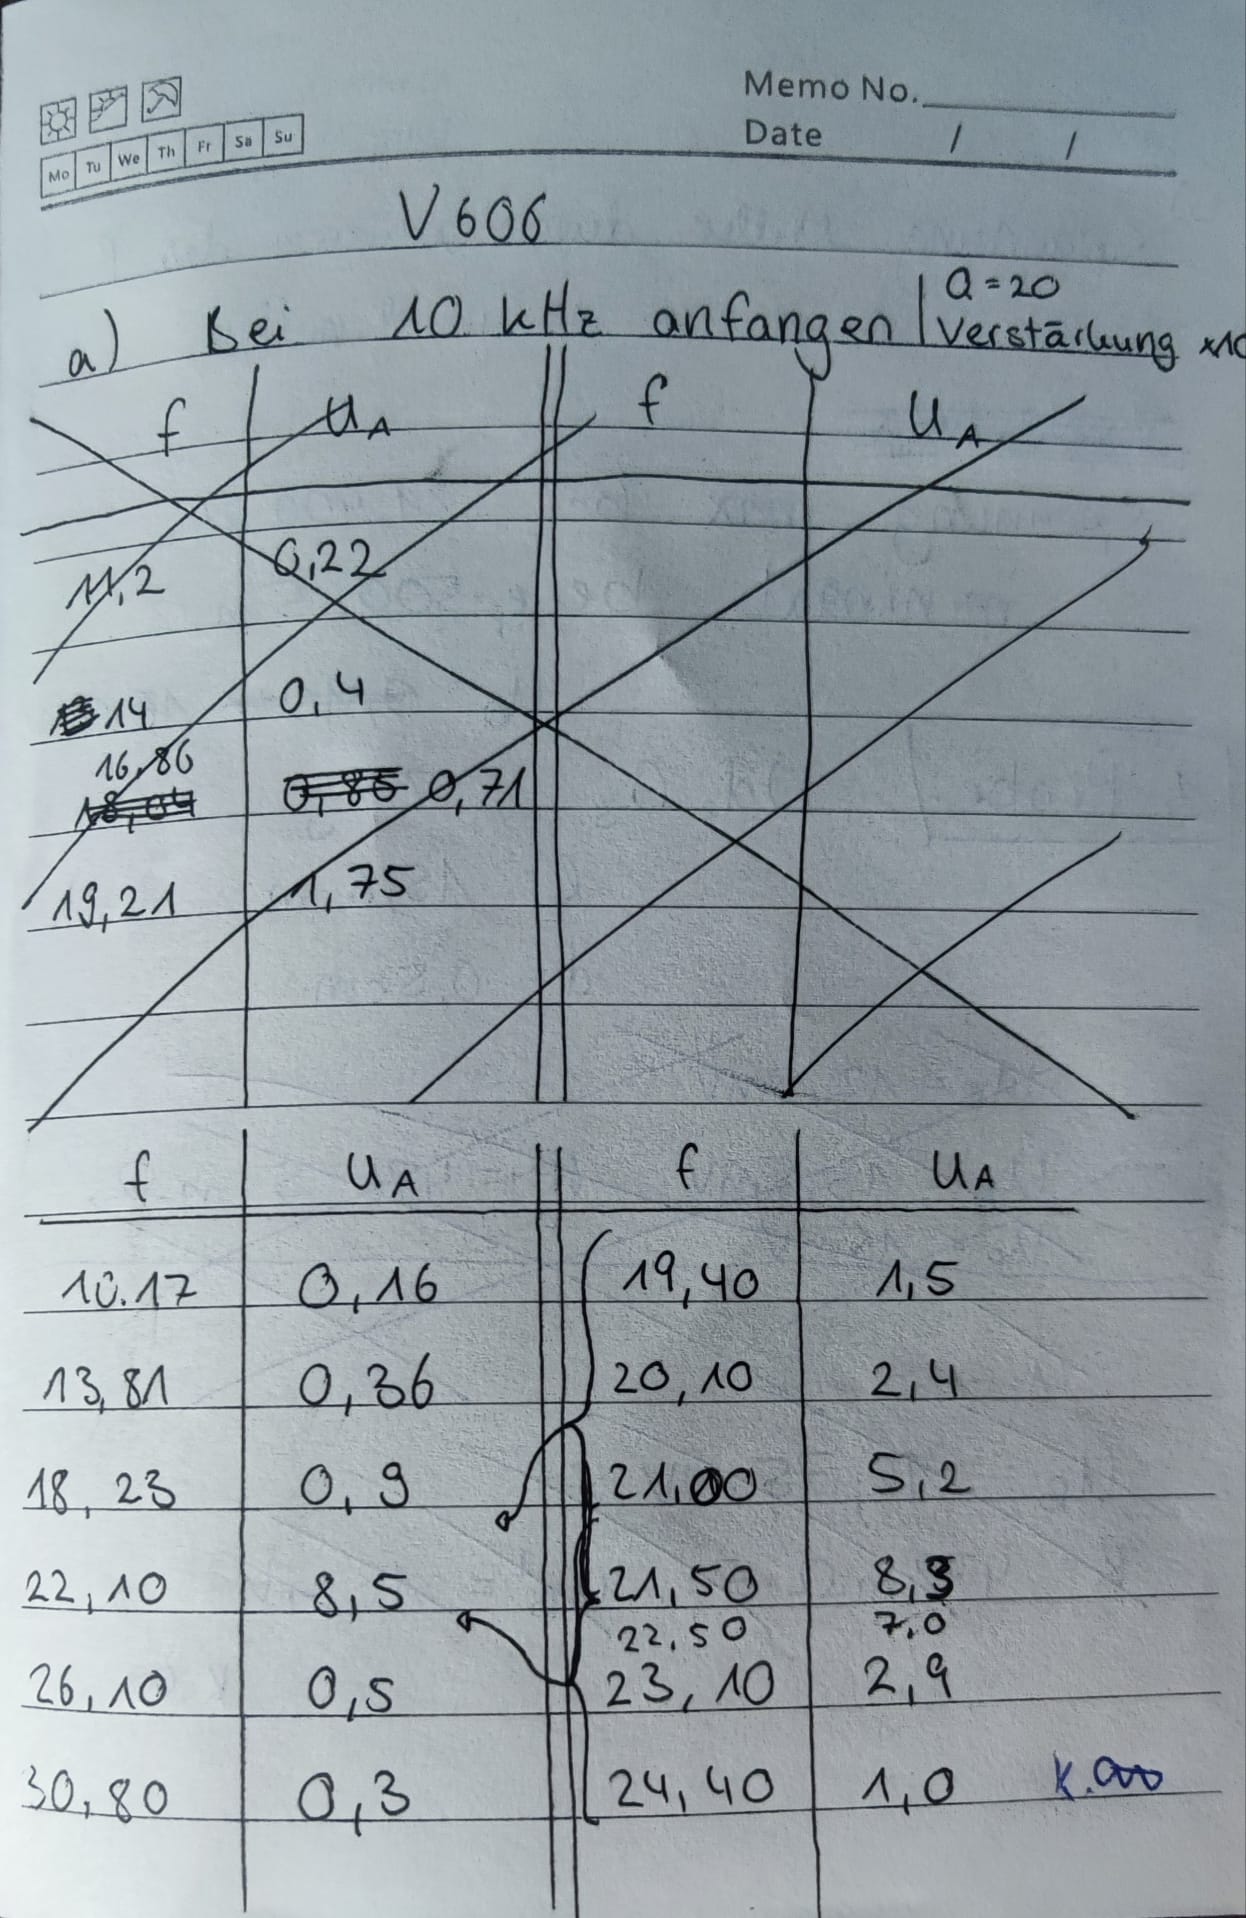 Memo No.
Date / /
Mo Tu We Th Fr Sa Su
V606
a) Bei 10 kHz anfangen | Q = 20
Verstärkung x10
f | U_A || f | U_A
11,2 | 0,22
14 | 0,4
16,86
18,04 | 0,86 0,71
19,21 | 1,75
f | U_A || f | U_A
10.17 | 0,16 || 19,40 | 1,5
13,81 | 0,36 || 20,10 | 2,4
18,23 | 0,9 || 21,00 | 5,2
22,10 | 8,5 || 21,50 | 8,3
22,50 | 7,0
26,10 | 0,5 || 23,10 | 2,9
30,80 | 0,3 || 24,40 | 1,0